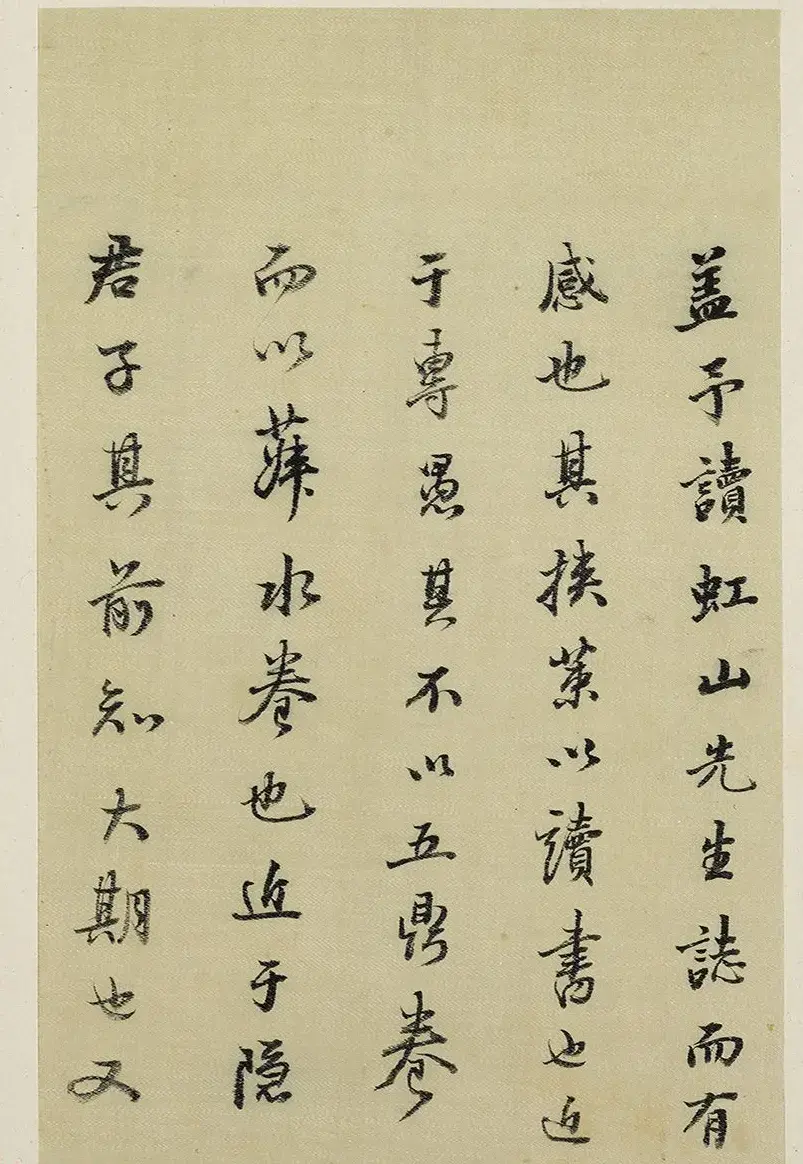 盖予讀虹山先生誌而有
感也其挾策以讀書也近
于專愚其不以五鼎養
而以菽水養也近于隐
君子其前知大期也又